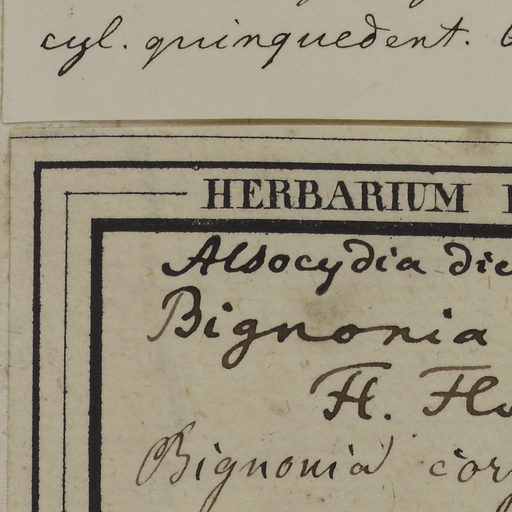 cyl. quinquedent.
HERBARIUM
Alsocydia
Bignonia
H.
Bignonia